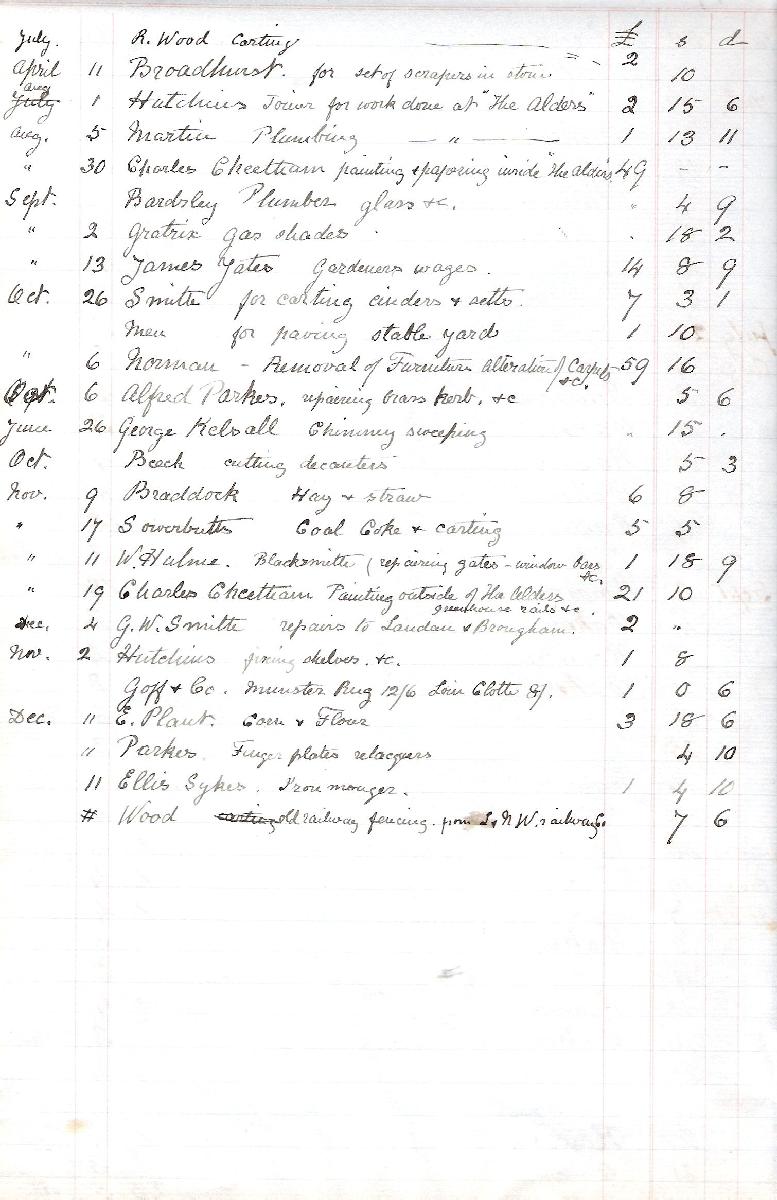 £ s d
July. R. Wood Carting — " - 2
April 11 Broadhurst. for set of scrapers in stone 10
Aug
July 1 Hutchins Joiner for work done at "The Alders" 2 15 6
Aug. 5 Martin Plumbing — " — 1 13 11
" 30 Charles Cheetham painting & papering inside "The Alders" 49 - -
Sept. Bardsley Plumber glass &c. " 4 9
" 2 Gratrix Gas shades . 18 2
" 13 James Yates Gardeners wages. 14 8 9
Oct. 26 Smith for carting cinders & setts. 7 3 1
Men for paving stable yard 1 10
" 6 Norman - Removal of Furniture Alteration of Carpets &c. 59 16
Sept. 6 Alfred Parkes, repairing brass kerb. &c 5 6
June 26 George Kelsall Chimney sweeping " 15 .
Oct. Beech cutting decanters 5 3
Nov. 9 Braddock Hay & straw 6 8
" 17 Sowerbutts Coal Coke & carting 5 5
" 11 W. Hulme. Blacksmith (repairing gates - window bars &c. 1 18 9
" 19 Charles Cheetham Painting outside of The Alders 21 10
greenhouse rails &c.
Dec. 4 G. W. Smith repairs to Landau & Brougham. 2 "
Nov. 2 Hutchins fixing shelves. &c. 1 8
Goff & Co. Munster Rug 12/6 Loin Cloth 8/. 1 0 6
Dec. " E. Plant. Corn & Flour 3 18 6
" Parkes Finger plates relacquers 4 10
11 Ellis Sykes. Ironmonger. 1 4 10
Wood carting old railway fencing. from L & N.W. railway Co. 7 6